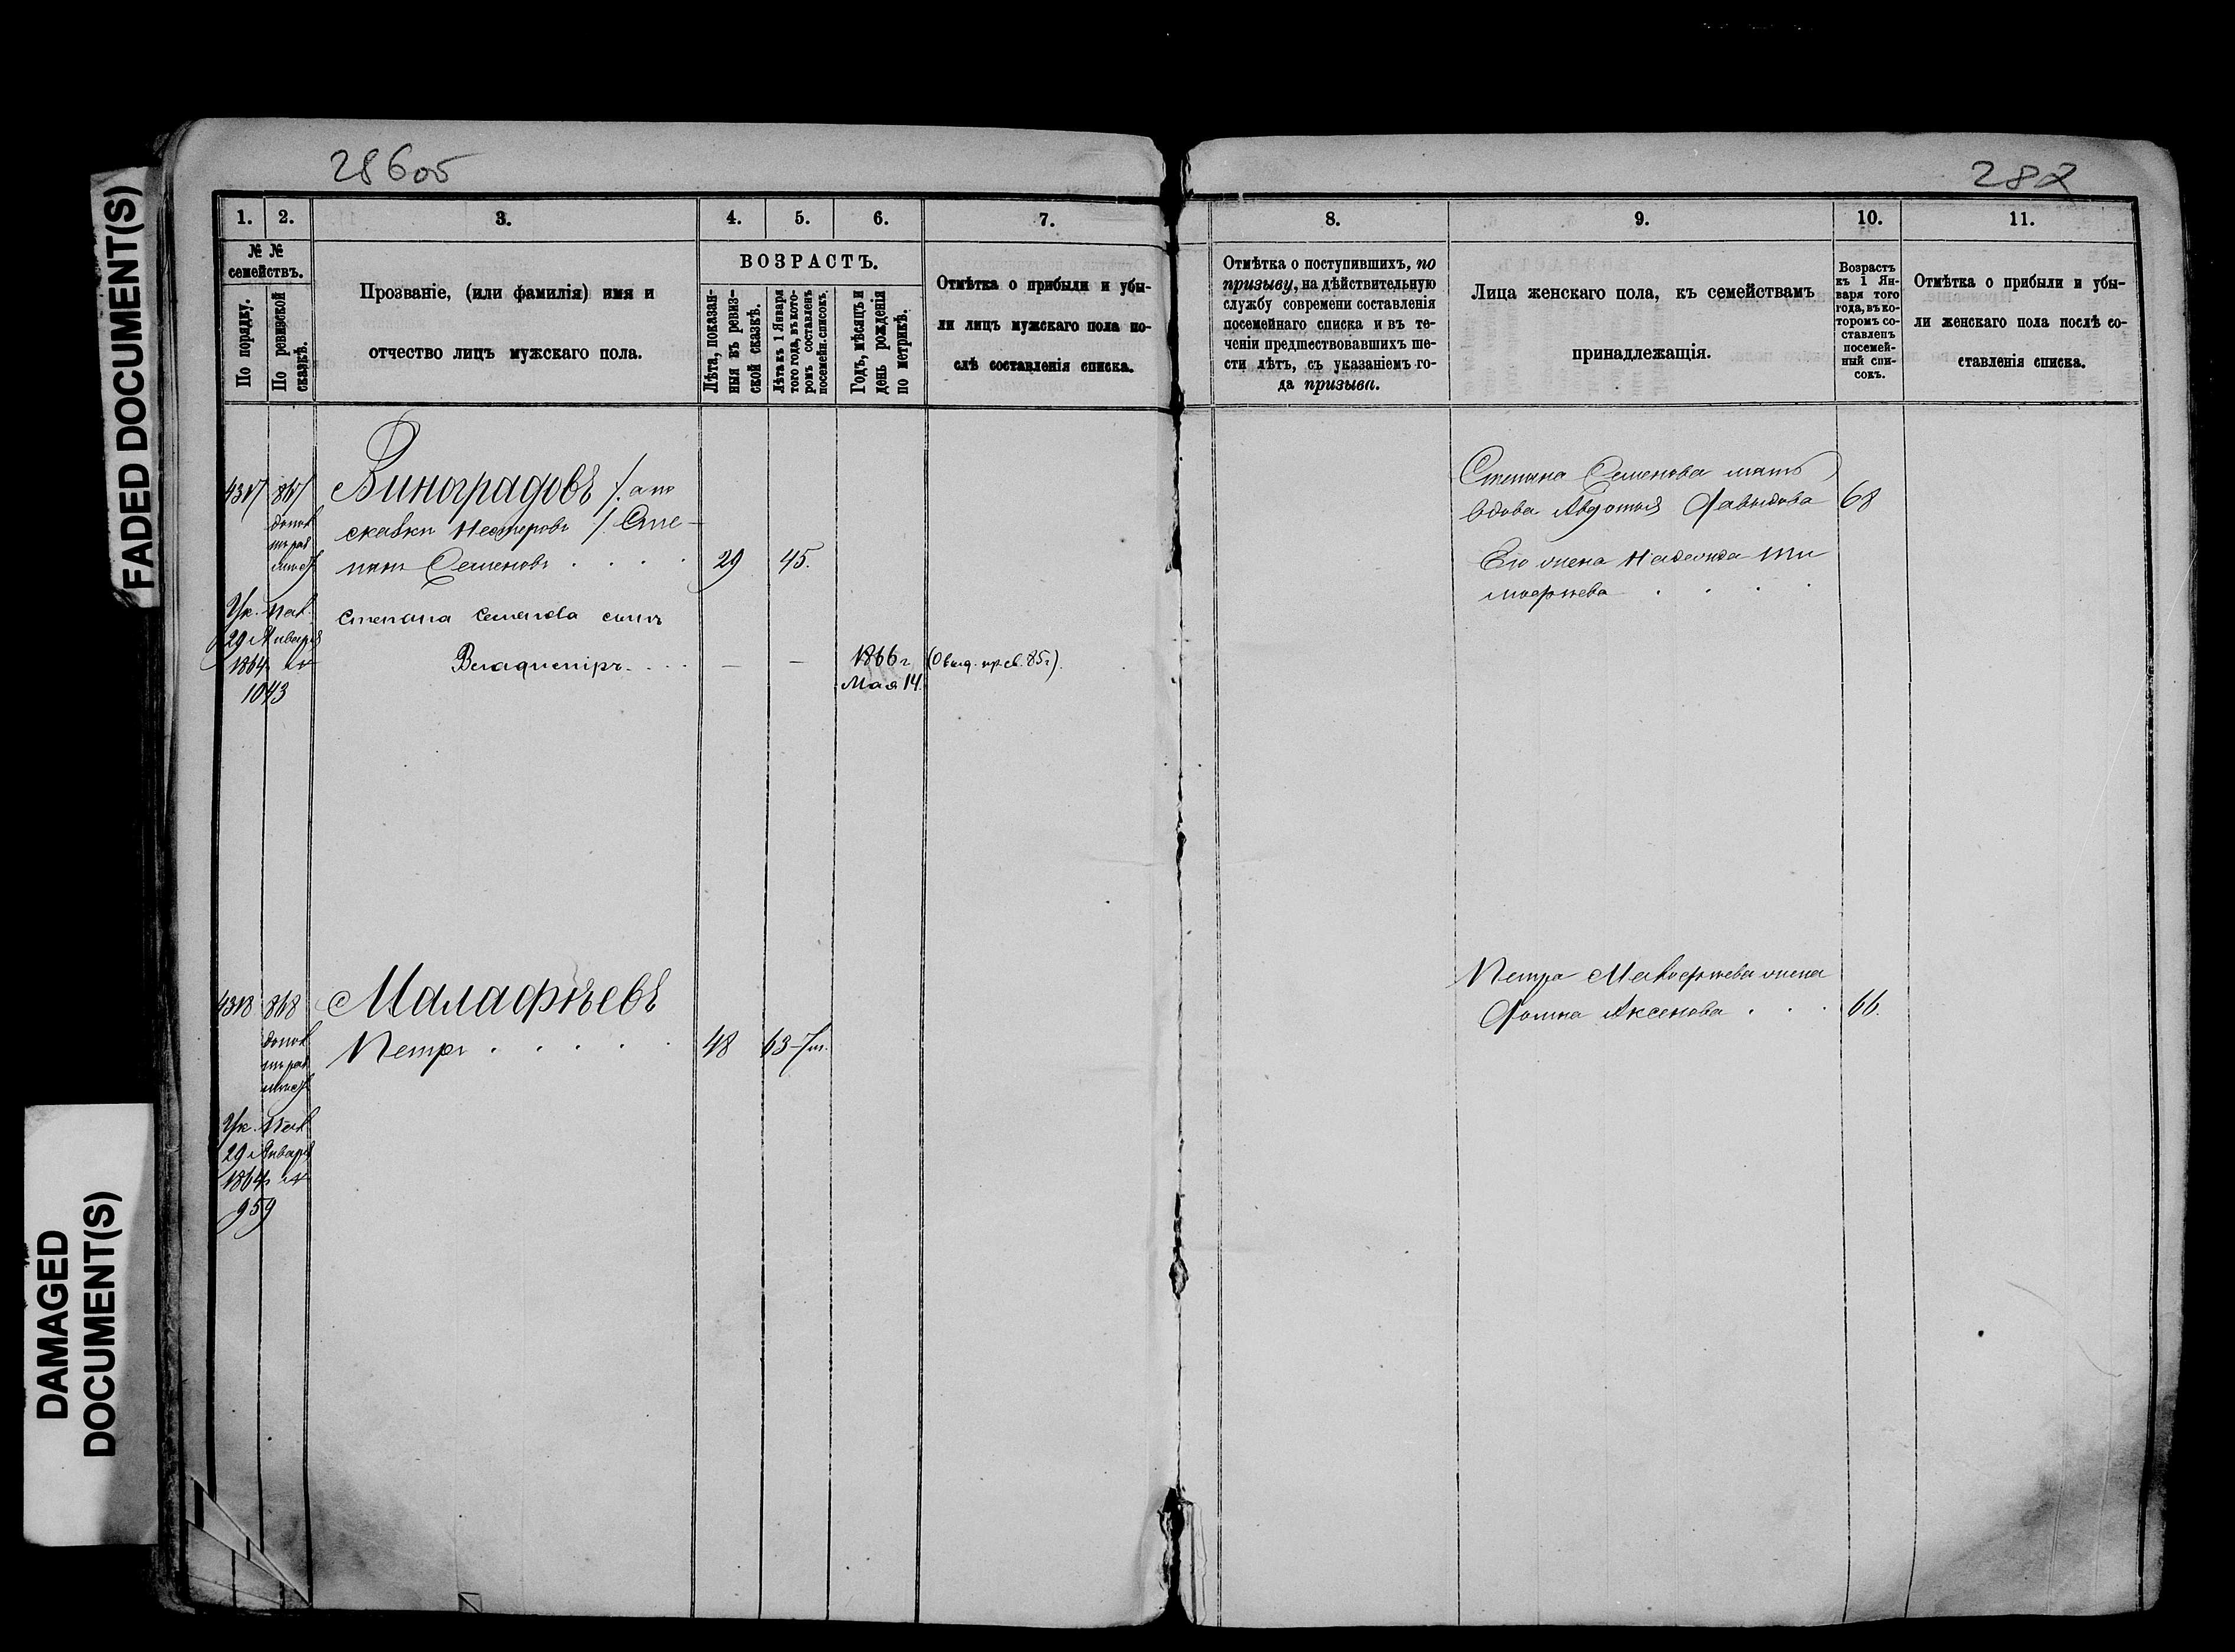 FADED DOCUMENT(S)
DAMAGED
DOCUMENT(S)
28605
282
1.
2.
3.
4.
5.
6.
7.
8.
9.
10.
11.
№ №
семействъ.
По порядку.
По ревизской
сказкѣ.
Прозваніе, (или фамилія) имя и
отчество лицъ мужскаго пола.
ВОЗРАСТЪ.
Лѣта, показан-
ныя въ ревиз-
ской сказкѣ.
Лѣта къ 1 Января
того года, въ кото-
ромъ составленъ
посемейн. списокъ.
Годъ, мѣсяцъ и
день рожденія
по метрикѣ.
Отмѣтка о прибыли и убы-
ли лицъ мужскаго пола по-
слѣ составленія списка.
Отмѣтка о поступившихъ, по
призыву, на дѣйствительную
службу современи составленія
посемейнаго списка и въ те-
ченіи предшествовавшихъ ше-
сти лѣтъ, съ указаніемъ го-
да призыва.
Лица женскаго пола, къ семействамъ
принадлежащія.
Возрастъ
къ 1 Ян-
варя того
года, въ ко-
торомъ со-
ставленъ
посемей-
ный спи-
сокъ.
Отмѣтка о прибыли и убы-
ли женскаго пола послѣ со-
ставленія списка.
4317
867
Виноградовъ /. а по
сказки Нестеровъ /. Сте-
панъ Семеновъ . . . .
29
45.
Ук. Пал.
29 Января
1864
1043
Степана Семенова сынъ
Владимiръ . . . .
—
—
1866 г
Мая 14.
Степана Семенова мать
вдова Авдотья Давыдова
68
Его жена Надежда Ти
мофѣева . . .
4318
868
Малафѣевъ
Петръ . . . . .
48
63
Ук. Пал
29 Января
1864
959
Петра Малафѣева жена
Домна Аксенова . . .
66.